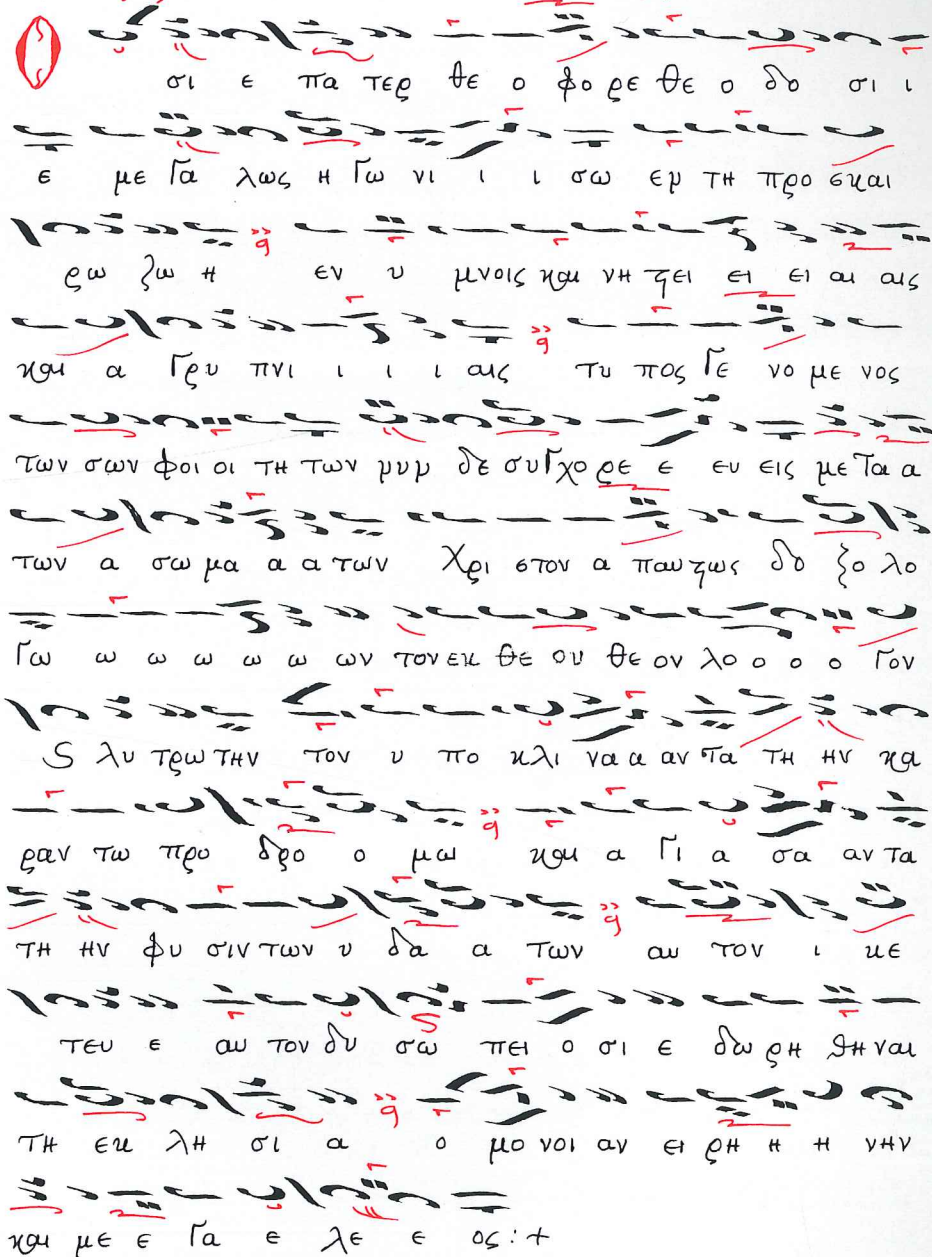 Ο σι ε πα τερ θε ο φο ρε θε ο δο σι ι
ε με γα λως η γω νι ι ι σω εν τη προ σκαι
ρω ζω η εν υ μνοις και νη στει ει ει αι αις
και α γρυ πνι ι ι ι αις τυ πος γε νο με νος
των σων φοι οι τη των μυμ δε συγχο ρε ε ευ εις με τα α
των α σω μα α α των Χρι στον α παυ στως δο ξο λο
γω ω ω ω ω ω ων τον εκ θε ου θε ον λο ο ο ο γον
S λυ τρω την τον υ πο κλι να α αν τα τη ην κα
ραν τω προ δρο ο μω και α γι α σα αν τα
τη ην φυ σιν των υ δα α των αυ τον ι κε
τευ ε αυ τον δυ σω πει ο σι ε δω ρη θη ναι
τη εκ λη σι α ο μο νοι αν ει ρη η η νην
και με ε γα ε λε ε ος : +